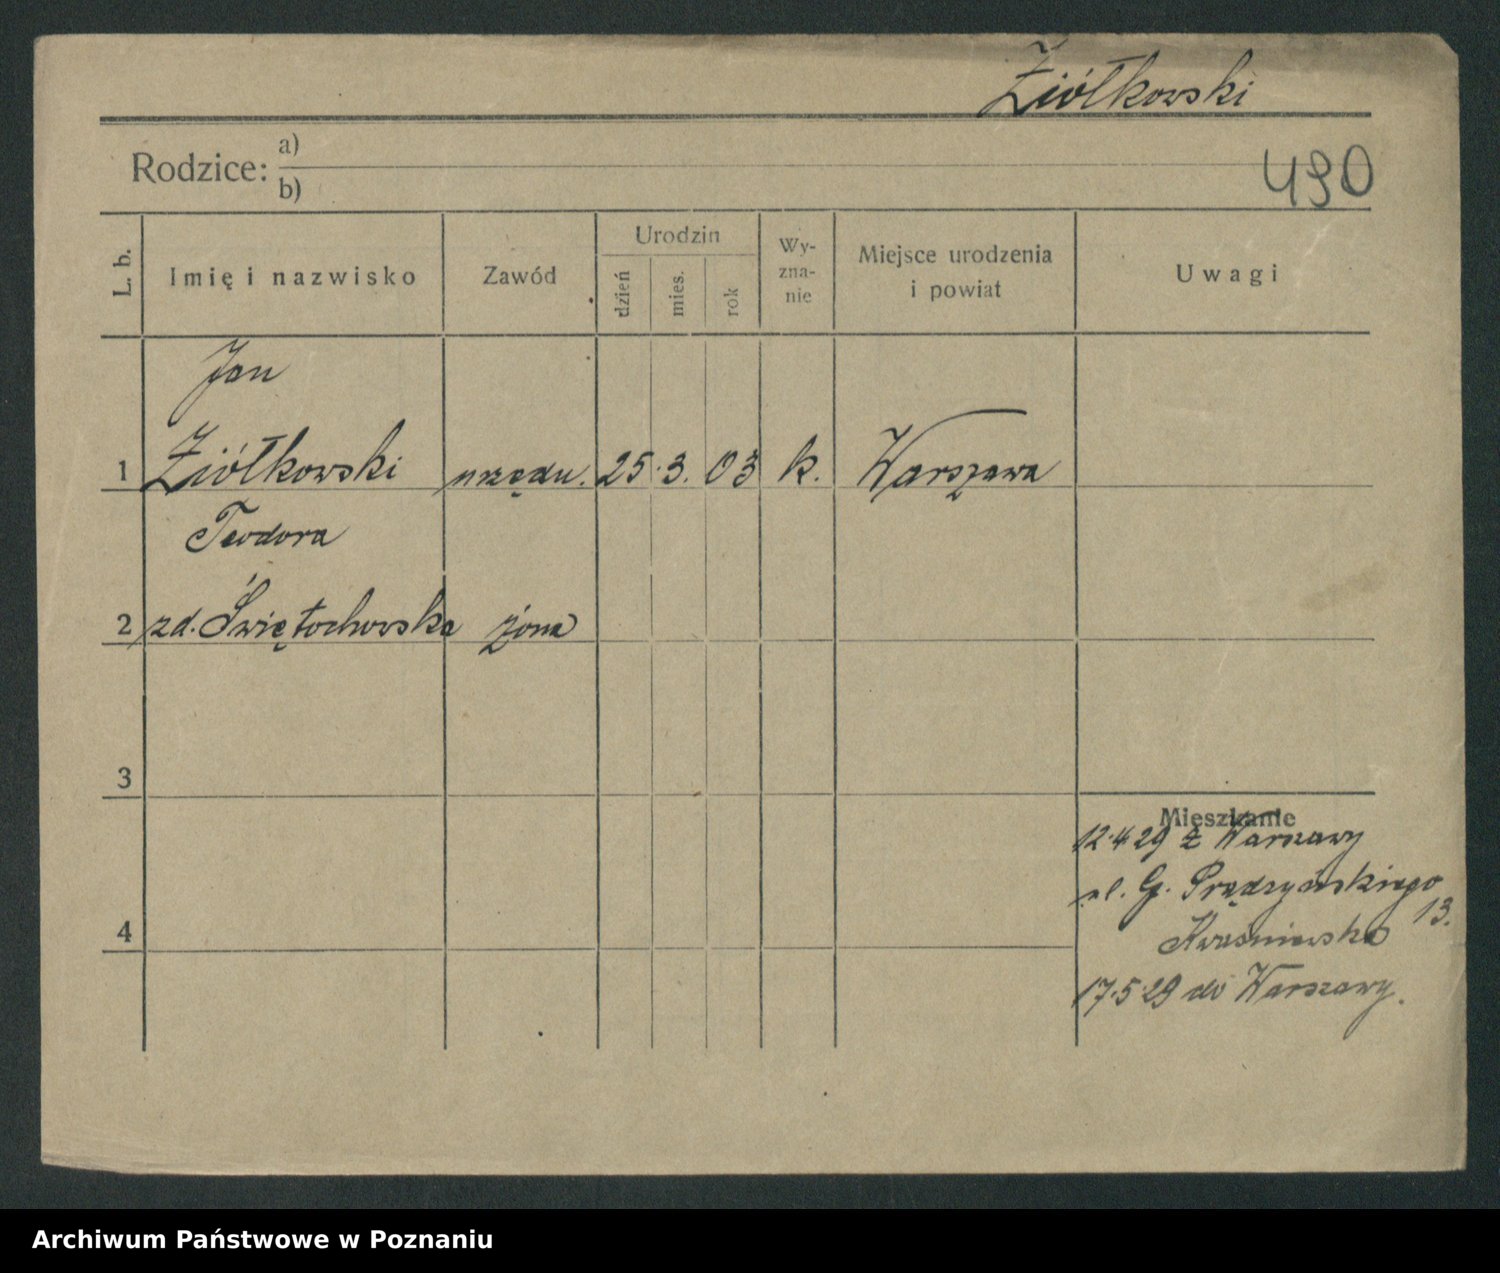 Ziółkowski
Rodzice: a)
b)
490
L. b.
Imię i nazwisko
Zawód
Urodzin
dzień
mies.
rok
Wy-
zna-
nie
Miejsce urodzenia
i powiat
Uwagi
Jan
1 Ziółkowski urzędn. 25. 3. 03 k. Warszawa
Teodora
2 zd. Świętochowska żona
3
Mieszkanie
12.4 29 z Warszawy
ul. G. Prądzyńskiego
13.
4
17.5 29 do Warszawy.
Archiwum Państwowe w Poznaniu